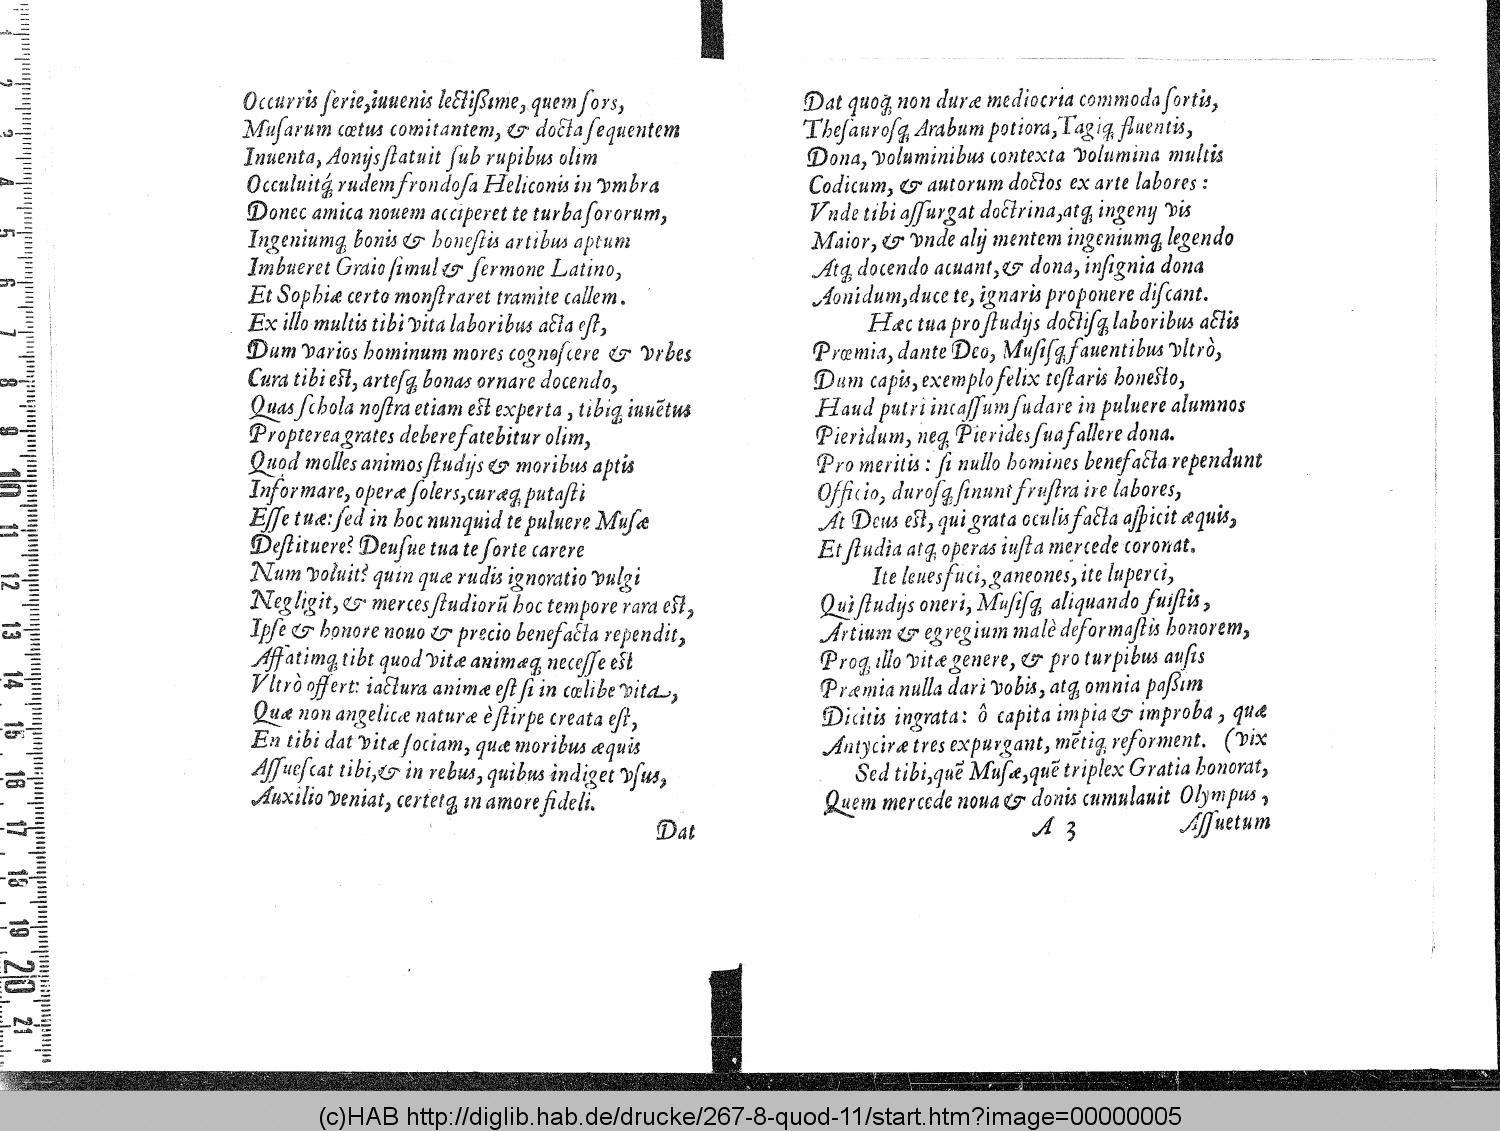 Occurris ſerie,iuuenis lectißime, quem ſors,
Muſarum cœtus comitantem, & docta ſequentem
Inuenta, Aonijs ſtatuit ſub rupibus olim
Occuluitq́; rudem frondoſa Heliconis in vmbra
Donec amica nouem acciperet te turba ſororum,
Ingeniumq; bonis & honeſtis artibus aptum
Imbueret Graio ſimul & ſermone Latino,
Et Sophiæ certo monſtraret tramite callem.
Ex illo multis tibi vita laboribus acta eſt,
Dum varios hominum mores cognoſcere & vrbes
Cura tibi est, arteſq; bonas ornare docendo,
Quas ſchola noſtra etiam est experta, tibiq; iuuẽtus
Propterea grates debere fatebitur olim,
Quod molles animos ſtudijs & moribus aptis
Informare, operæ ſolers,curæq; putaſti
Eſſe tuæ: ſed in hoc nunquid te puluere Muſæ
Deſtituere? Deuſue tua te ſorte carere
Num voluit? quin quæ rudis ignoratio vulgi
Negligit, & merces ſtudiorũ hoc tempore rara est,
Ipſe & honore nouo & precio benefacta rependit,
Affatimq; tibt quod vitæ animæq; neceſſe est
Vltrò offert: iactura animæ eſt ſi in cœlibe vita,
Quæ non angelicæ naturæ è ſtirpe creata eſt,
En tibi dat vitæ ſociam, quæ moribus æquis
Aſſueſcat tibi,& in rebus, quibus indiget vſus,
Auxilio veniat, certetq; in amore fideli.
Dat
Dat quoq; non duræ mediocria commoda ſortis,
Theſauroſq; Arabum potiora,Tagiq; fluentis,
Dona, voluminibus contexta volumina multis
Codicum, & autorum doctos ex arte labores :
Vnde tibi aſſurgat doctrina,atq; ingenij vis
Maior, & vnde alij mentem ingeniumq; legendo
Atq; docendo acuant,& dona, inſignia dona
Aonidum,duce te, ignaris proponere diſcant.
Hæc tua pro ſtudijs doctiſq; laboribus actis
Præmia, dante Deo, Muſiſq; fauentibus vltrò,
Dum capis, exemplo felix teſtaris honesto,
Haud putri incaſſum ſudare in puluere alumnos
Pieridum, neq; Pierides ſua fallere dona.
Pro meritis : ſi nullo homines benefacta rependunt
Officio, duroſq; ſinunt fruſtra ire labores,
At Deus est, qui grata oculis facta aſpicit æquis,
Et ſtudia atq; operas iuſta mercede coronat.
Ite leues fuci, ganeones, ite luperci,
Qui ſtudijs oneri, Muſiſq; aliquando fuiſtis,
Artium & egregium malè deformaſtis honorem,
Proq; illo vitæ genere, & pro turpibus auſis
Præmia nulla dari vobis, atq; omnia paßim
Dicitis ingrata: ô capita impia & improba, quæ
Antyciræ tres expurgant, mẽtiq; reforment. (vix
Sed tibi,quẽ Muſæ,quẽ triplex Gratia honorat,
Quem mercede noua & donis cumulauit Olympus,
A 3 Aſſuetum
(c)HAB http://diglib.hab.de/drucke/267-8-quod-11/start.htm?image=00000005